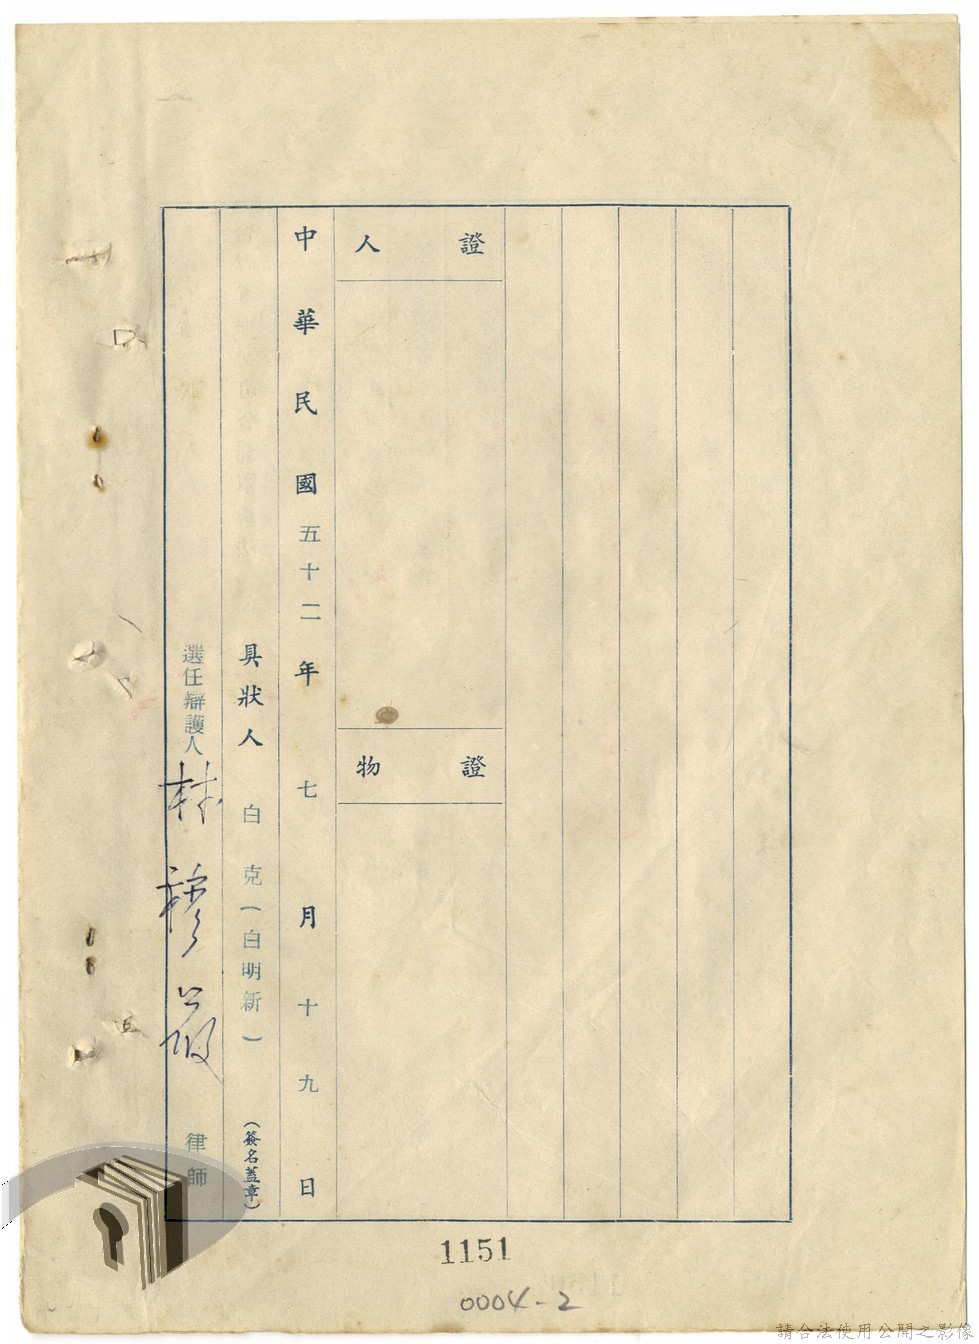 證人
證物
中華民國五十二年七月十九日
具狀人 白克(白明新) (簽名蓋章)
選任辯護人 林穆 律師
1151
0004-2
請合法使用公開之影像